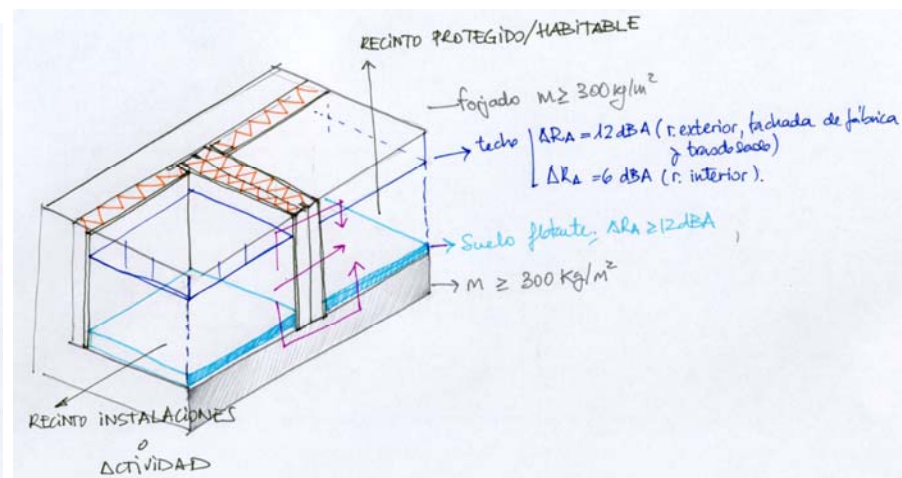 RECINTO PROTEGIDO/HABITABLE
forjado m ≥ 300 kg/m²
techo ΔRA = 12 dBA (r. exterior, fachada de fábrica
y trasdosado)
ΔRA = 6 dBA (r. interior).
Suelo flotante: ΔRA ≥ 12 dBA
m ≥ 300 Kg/m²
RECINTO INSTALACIONES
o
ACTIVIDAD